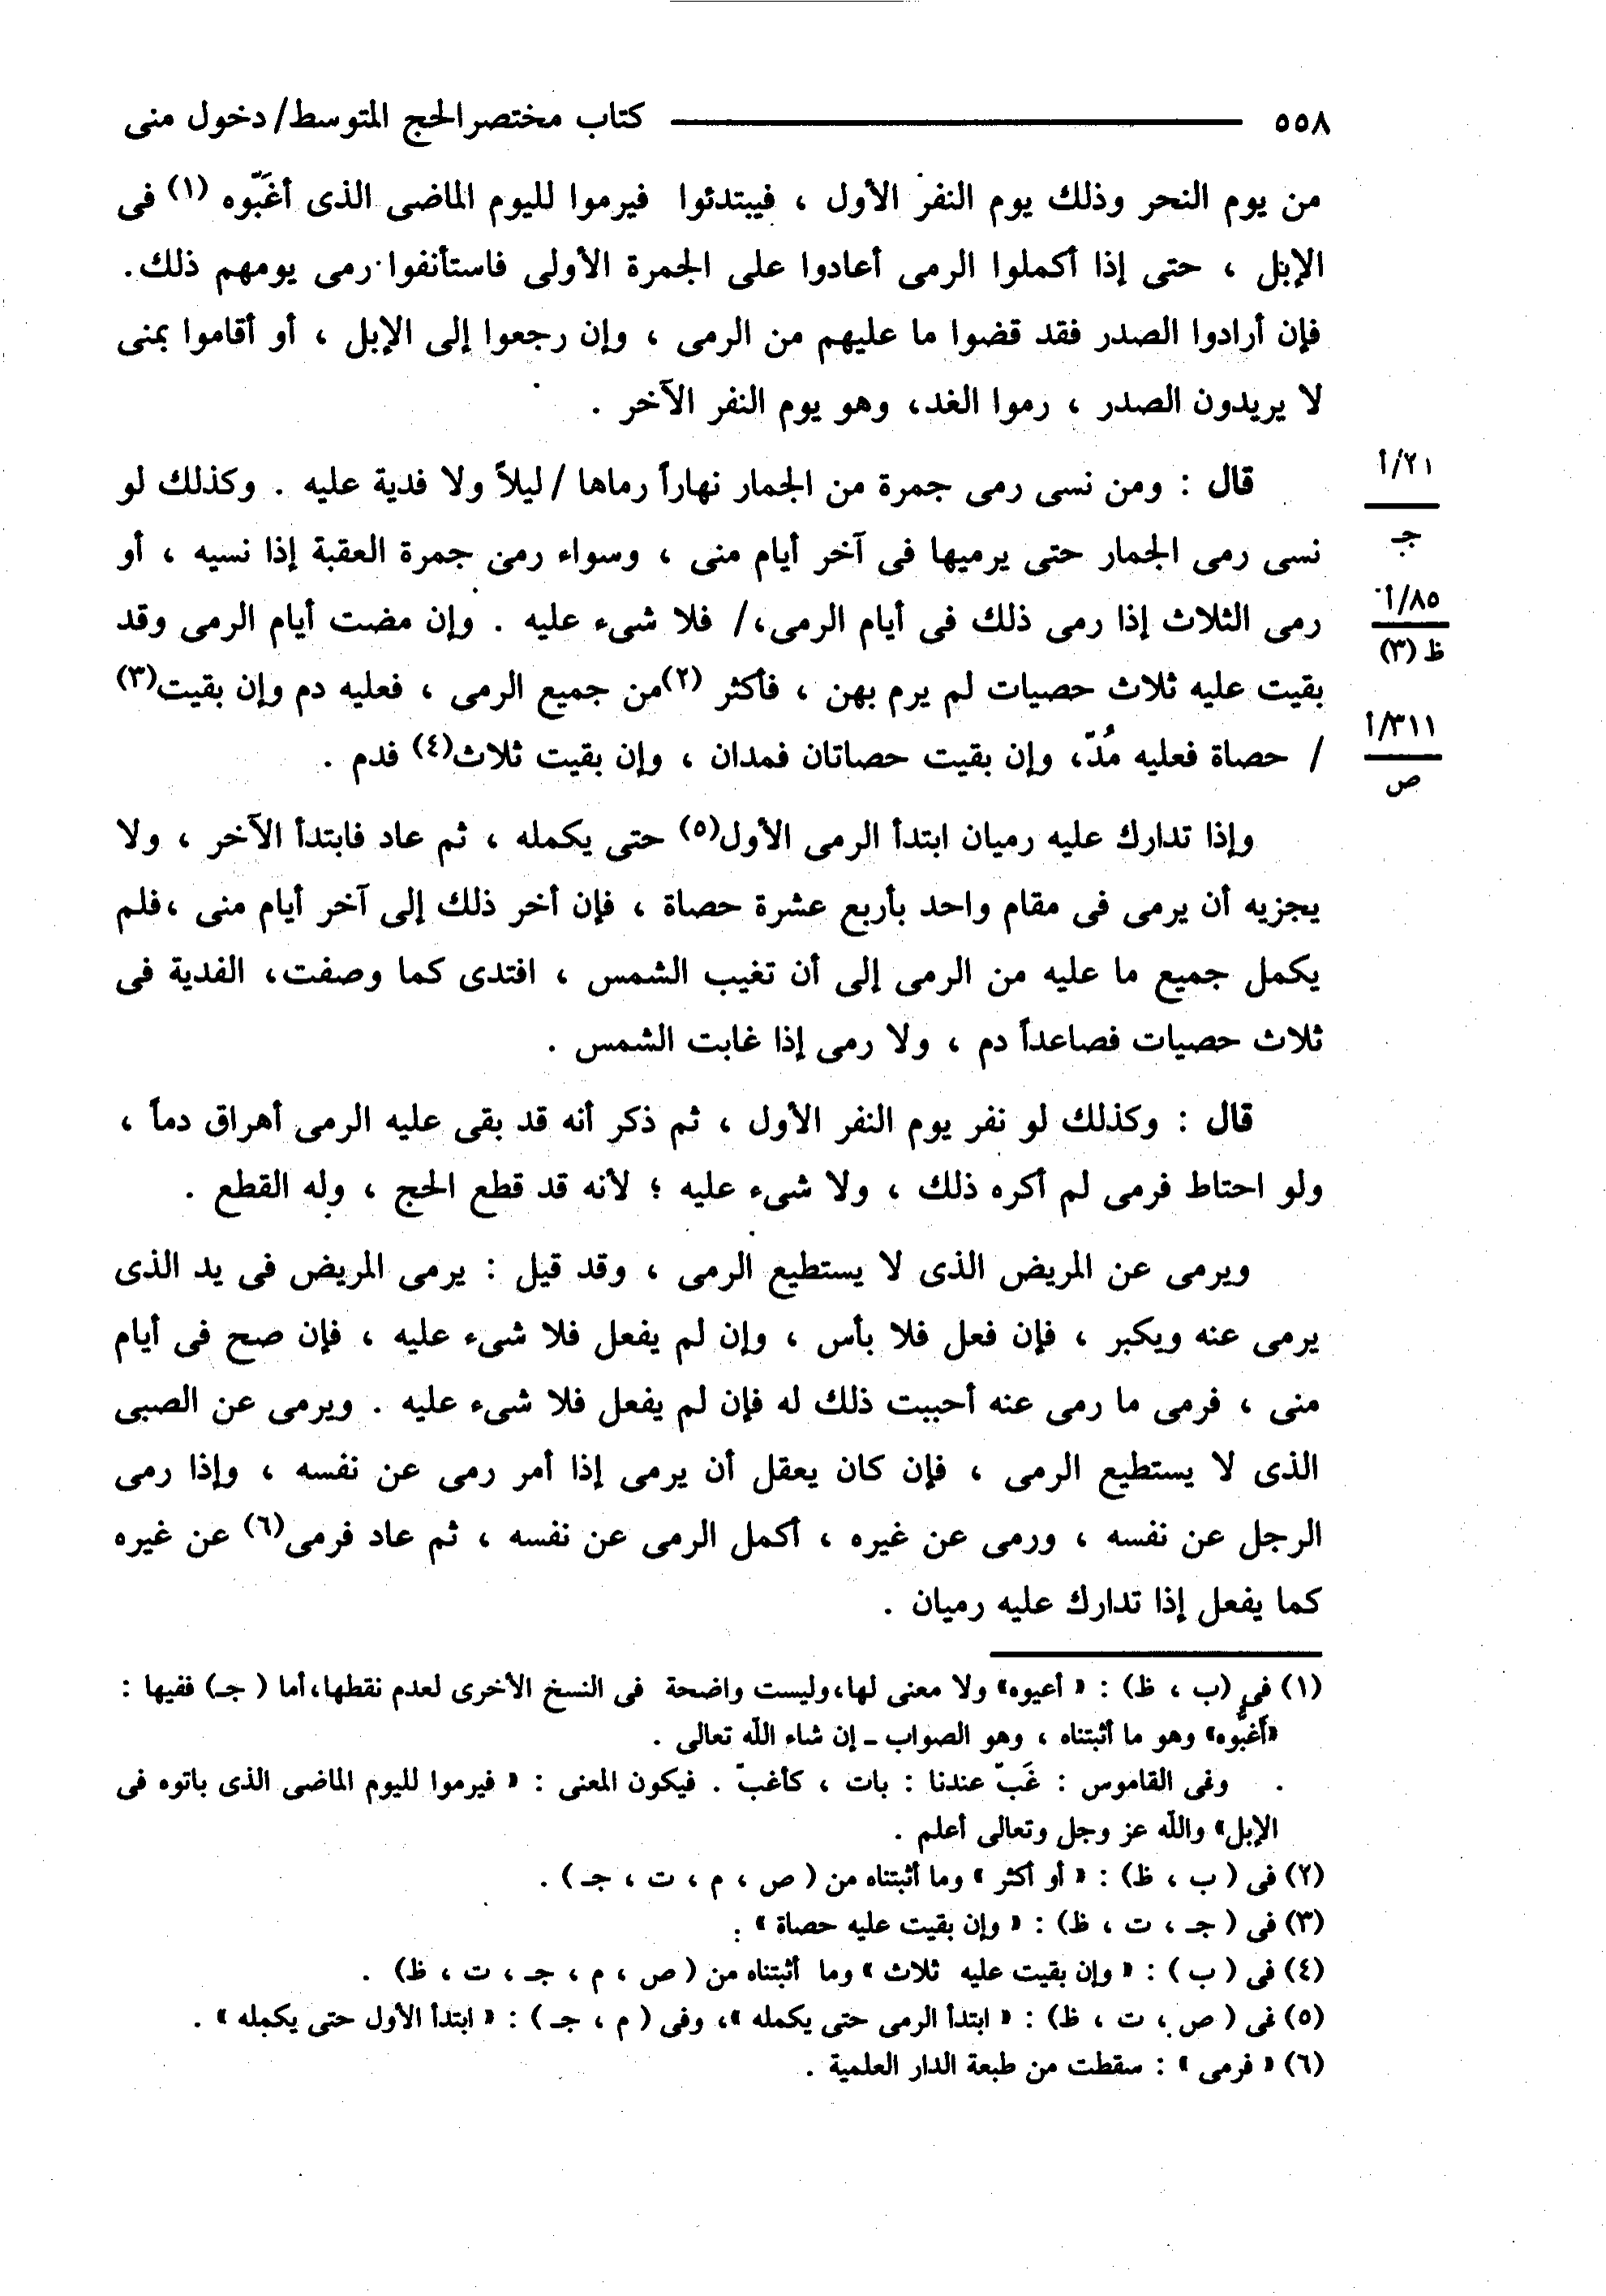 ٥٥٨ كتاب مختصر الحج المتوسط/ دخول منى
من يوم النحر وذلك يوم النفر الأول ، فيبتدئوا فيرموا لليوم الماضى الذى أغبّوه (١) فى
الإبل ، حتى إذا أكملوا الرمى أعادوا على الجمرة الأولى فاستأنفوا رمى يومهم ذلك.
فإن أرادوا الصدر فقد قضوا ما عليهم من الرمى ، وإن رجعوا إلى الإبل ، أو أقاموا بمنى
لا يريدون الصدر ، رموا الغد، وهو يوم النفر الآخر .
قال : ومن نسى رمى جمرة من الجمار نهاراً رماها / ليلاً ولا فدية عليه . وكذلك لو
٢١/أ
نسى رمى الجمار حتى يرميها فى آخر أيام منى ، وسواء رمى جمرة العقبة إذا نسيه ، أو
جـ
رمى الثلاث إذا رمى ذلك فى أيام الرمى،/ فلا شىء عليه . وإن مضت أيام الرمى وقد
٨٥/أ
ظ (٣)
بقيت عليه ثلاث حصيات لم يرم بهن ، فأكثر (٢)من جميع الرمى ، فعليه دم وإن بقيت(٣)
٣١١/أ
/ حصاة فعليه مُدّ، وإن بقيت حصاتان فمدان ، وإن بقيت ثلاث(٤) فدم .
ص
وإذا تدارك عليه رميان ابتدأ الرمى الأول(٥) حتى يكمله ، ثم عاد فابتدأ الآخر ، ولا
يجزيه أن يرمى فى مقام واحد بأربع عشرة حصاة ، فإن أخر ذلك إلى آخر أيام منى ،فلم
يكمل جميع ما عليه من الرمى إلى أن تغيب الشمس ، افتدى كما وصفت، الفدية فى
ثلاث حصيات فصاعداً دم ، ولا رمى إذا غابت الشمس .
قال : وكذلك لو نفر يوم النفر الأول ، ثم ذكر أنه قد بقى عليه الرمى أهراق دماً ،
ولو احتاط فرمى لم أكره ذلك ، ولا شىء عليه ؛ لأنه قد قطع الحج ، وله القطع .
ويرمى عن المريض الذى لا يستطيع الرمى ، وقد قيل : يرمى المريض فى يد الذى
يرمى عنه ويكبر ، فإن فعل فلا بأس ، وإن لم يفعل فلا شىء عليه ، فإن صح فى أيام
منى ، فرمى ما رمى عنه أحببت ذلك له فإن لم يفعل فلا شىء عليه . ويرمى عن الصبى
الذى لا يستطيع الرمى ، فإن كان يعقل أن يرمى إذا أمر رمى عن نفسه ، وإذا رمى
الرجل عن نفسه ، ورمى عن غيره ، أكمل الرمى عن نفسه ، ثم عاد فرمى(٦) عن غيره
كما يفعل إذا تدارك عليه رميان .
(١) فى (ب ، ظ) : « أعيوه» ولا معنى لها،وليست واضحة فى النسخ الأخرى لعدم نقطها،أما ( جـ) ففيها :
«أَغبُّوه» وهو ما أثبتناه ، وهو الصواب ـ إن شاء اللّه تعالى .
وفى القاموس : غَبّ عندنا : بات ، كأغبّ . فيكون المعنى : « فيرموا لليوم الماضى الذى باتوه فى
الإبل» واللّه عز وجل وتعالى أعلم .
(٢) فى ( ب ، ظ) : « أو أكثر » وما أثبتناه من ( ص ، م ، ت ، جـ ) .
(٣) فى ( جـ ، ت ، ظ) : « وإن بقيت عليه حصاة » .
(٤) فى ( ب ) : « وإن بقيت عليه ثلاث » وما أثبتناه من ( ص ، م ، جـ ، ت ، ظ) .
(٥) فى ( ص ، ت ، ظ) : « ابتدأ الرمى حتى يكمله »، وفى ( م ، جـ ) : « ابتدأ الأول حتى يكمله » .
(٦) « فرمى » : سقطت من طبعة الدار العلمية .